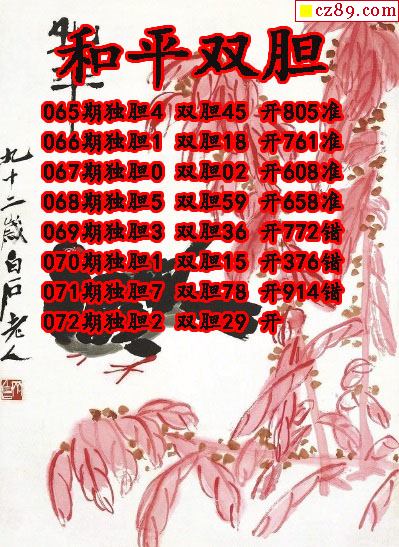 cz89.com
和平双胆
065期独胆4 双胆45 开805准
066期独胆1 双胆18 开761准
067期独胆0 双胆02 开608准
068期独胆5 双胆59 开658准
069期独胆3 双胆36 开772错
070期独胆1 双胆15 开376错
071期独胆7 双胆78 开914错
072期独胆2 双胆29 开
九十二岁白石老人